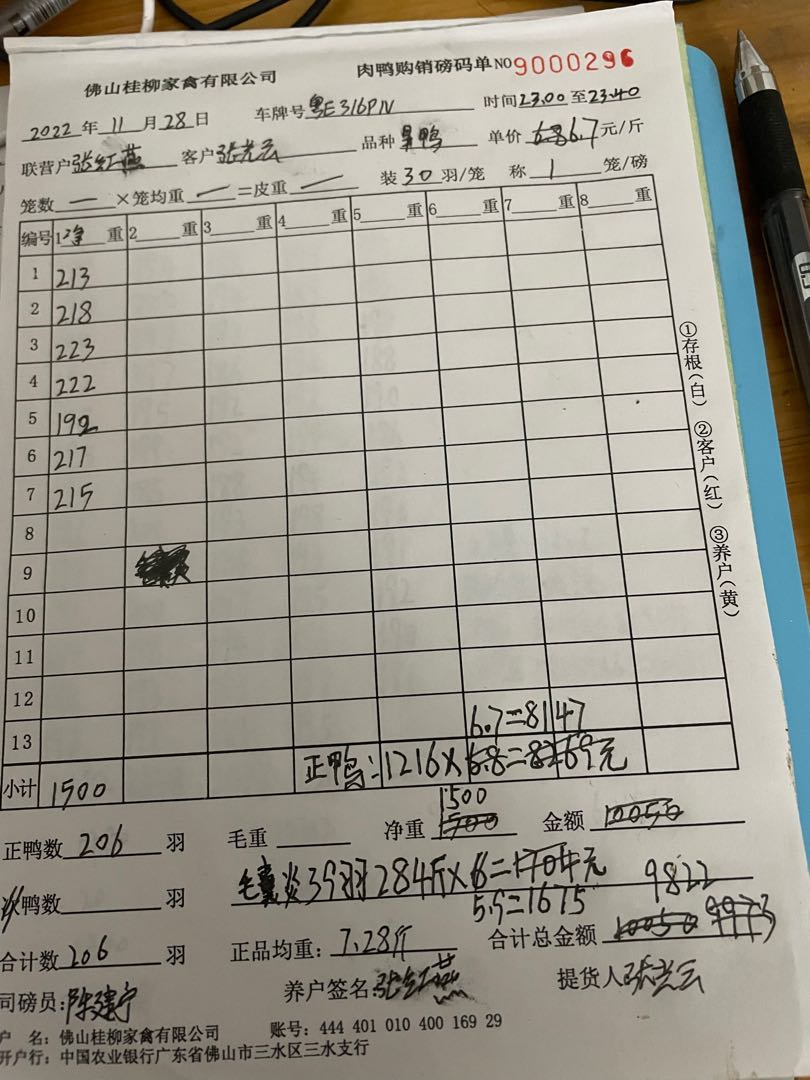 佛山桂柳家禽有限公司 肉鸭购销磅码单 NO 9000296
2022年11月28日 车牌号 粤E316PN 时间23.00至23.40
联营户张红燕 客户张光云 品种 单价 6.8 6.7元/斤
笼数 一 ×笼均重 一 =皮重 一 装30羽/笼 称1笼/磅
编号 1净重 2重 3重 4重 5重 6重 7重 8重
1 213
2 218
3 223
4 222
5 192
6 217
7 215
8
9
10
11
12
6.7=8147
13
正鸭:1216×6.8=8269元
小计 1500
1500
正鸭数206羽 毛重 净重1500 金额10050
毛囊炎39羽284斤×6=1704元 9822
鸭数 羽 5.9=1675
合计数206羽 正品均重:7.28斤 合计总金额10050 9973
司磅员:陈建宁 养户签名:张红燕 提货人张光云
户 名:佛山桂柳家禽有限公司 账号:444 401 010 400 169 29
开户行:中国农业银行广东省佛山市三水区三水支行
①存根(白) ②客户(红) ③养户(黄)